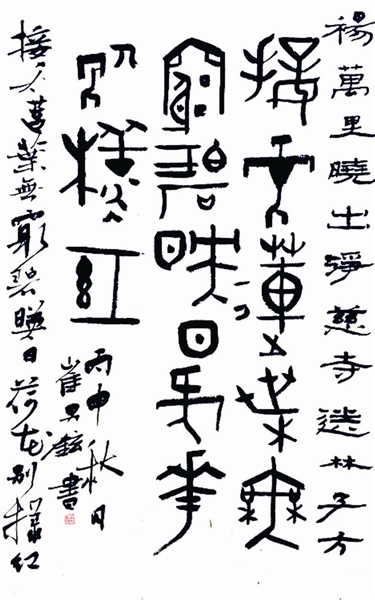 楊萬里曉出淨慈寺送林子方
接天蓮葉無
窮碧映日荷花
別樣紅
丙申秋月
崔鉉書
接天蓮葉無窮碧暎日荷花別樣紅